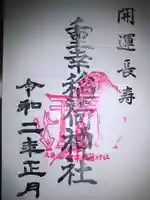 開運長寿
重幸稲荷神社
令和二年正月